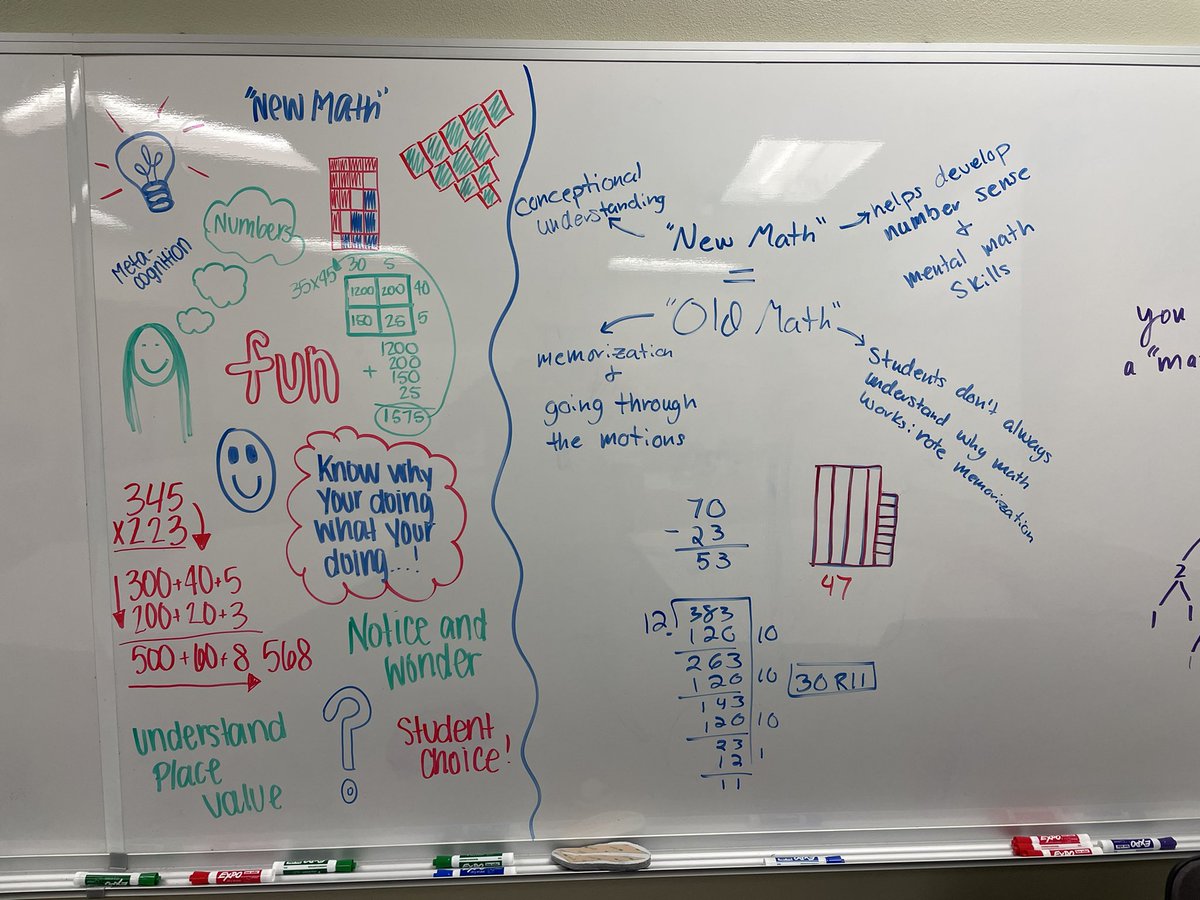 "New Math"
Numbers
Meta-
cognition
35x45
30 5
1200 200 40
150 25 5
1200
200
+ 150
25
1575
fun
Know why
your doing
what your
doing...!
345
x223
300+40+5
200+20+3
500+60+8 568
Notice and
wonder
understand
place
value
?
Student
choice!
conceptional
understanding
"New Math"
helps develop
number sense
+
mental math
skills
=
"Old Math"
memorization
+
going through
the motions
Students don't always
understand why math
works: rote memorization
70
- 23
53
47
12. 383
120 10
263
120 10
143
120 10
23
12 1
11
30 R11
you
a "ma
2
1 1
EXPO
EXPO
EXPO